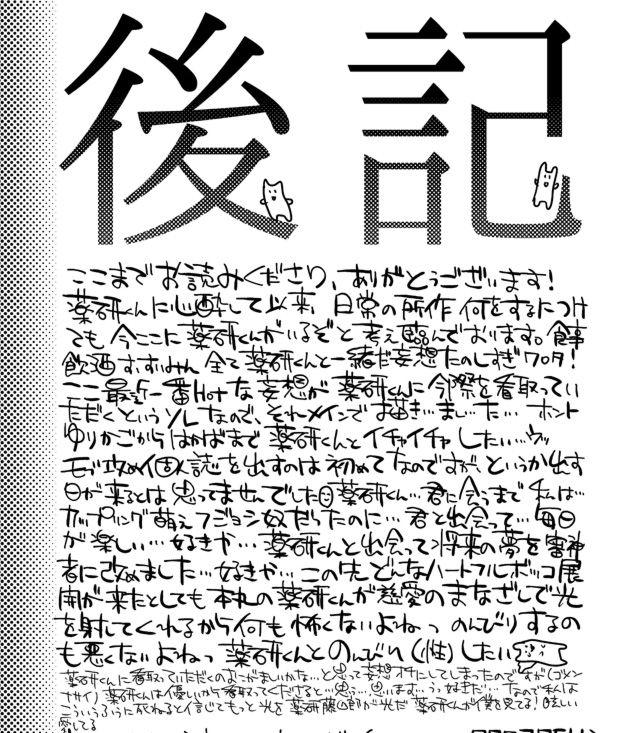 後記
ここまでお読みくださり、ありがとうございます!
薬研くんに心酔して以来、日常の所作何をするにつけ
ても今ここに薬研くんがいるぞと考え臨んでおります。食事
飲酒すいすいみん全て薬研くんと一緒だ妄想たのしすぎワロタ!
ここ最近一番Hotな妄想が薬研くんに今際を看取ってい
ただくというソレなので、それメインでお描き…まし…た… ホント
ゆりかごからはかばまで薬研くんとイチャイチャしたい…ウッ
モブ攻め個人誌を出すのは初めてなのですが、というか出す
日が来るとは思ってませんでした 薬研くん…君に会うまで私は…
カップリング萌えフジョシ奴だったのに…君と出会って…毎日
が楽しい…好きや…薬研くんと出会って将来の夢を審神
者に改めました…好きや…この先どんなハートフルボッコ展
開が来たとしても本丸の薬研くんが慈愛のまなざしで光
を射してくれるから何も怖くないよねっ のんびりするの
も悪くないよねっ 薬研くんとのんびり(性)したい
薬研くんに看取っていただくのおこがましいかな…と思って妄想オチにしてしまったのですが(ゴメン
ナサイ)薬研くんは優しいから看取ってくださると…思う…思います…うっ好きだ…なので私は
こういうふうに死ねると信じてもっと光を 薬研藤四郎が光だ 薬研くんが僕を見てる!眩しい
愛してる